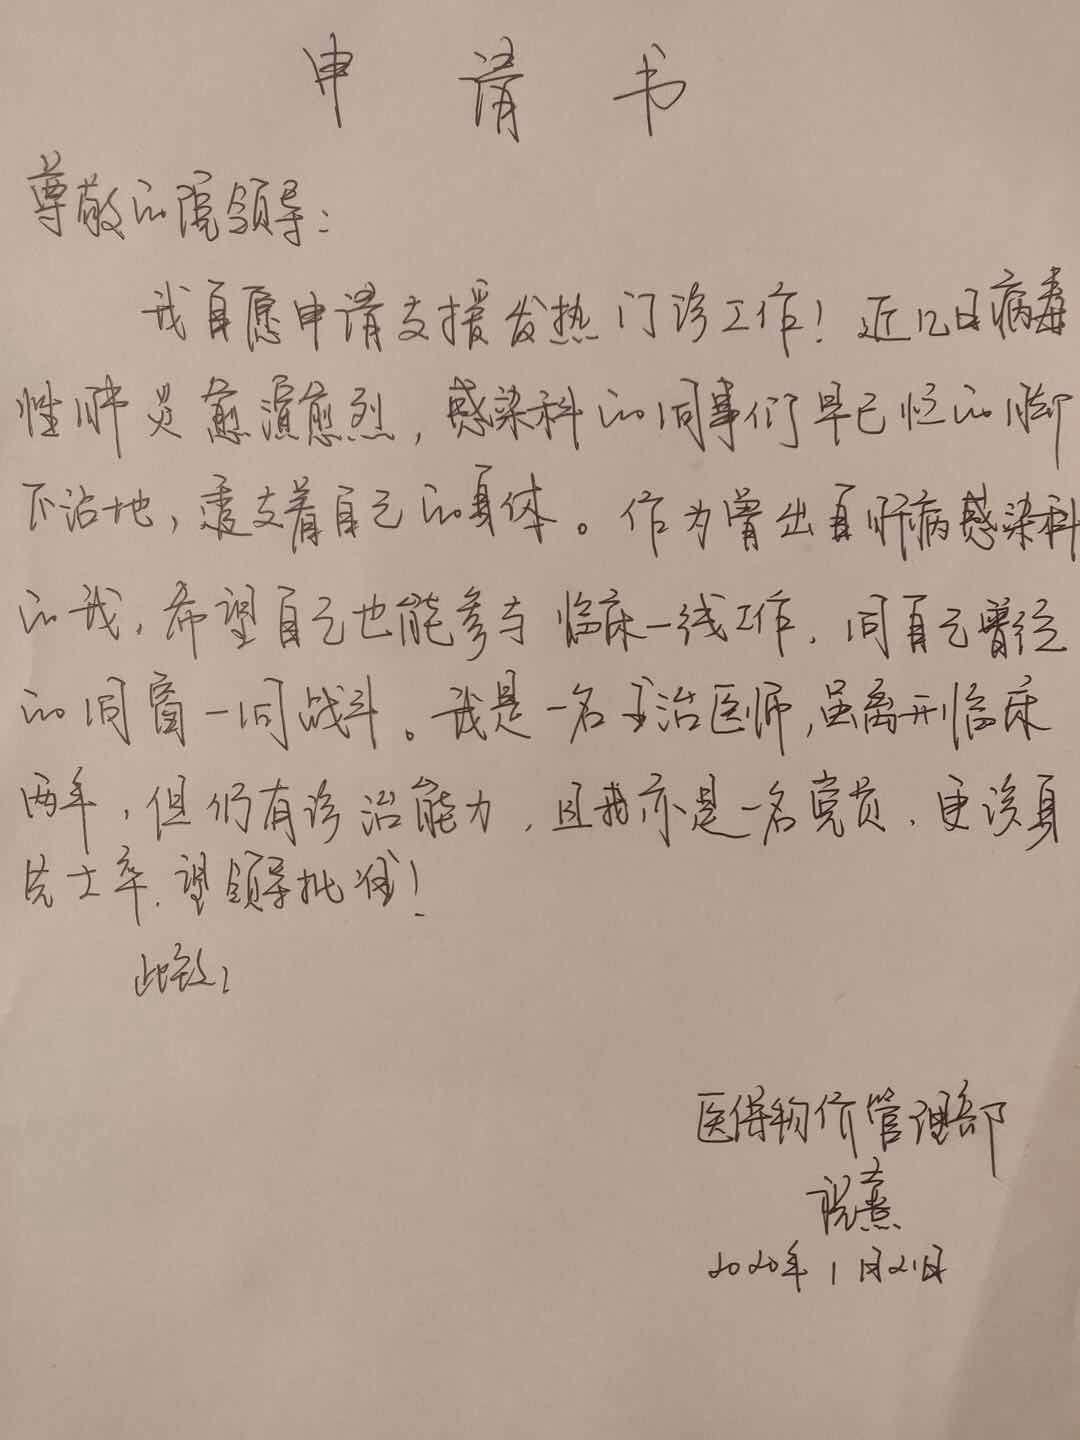 申请书
尊敬的院领导:
我自愿申请支援发热门诊工作！近几日病毒
性肺炎愈演愈烈，感染科的同事们早已忙的脚
不沾地，透支着自己的身体。作为曾出自肝病感染科
的我，希望自己也能参与临床一线工作，同自己曾经
的同窗一同战斗。我是一名主治医师，虽离开临床
两年，但仍有诊治能力，且我亦是一名党员，更该身
先士卒.望领导批准！
此致，
医保物价管理部
2020年1月21日